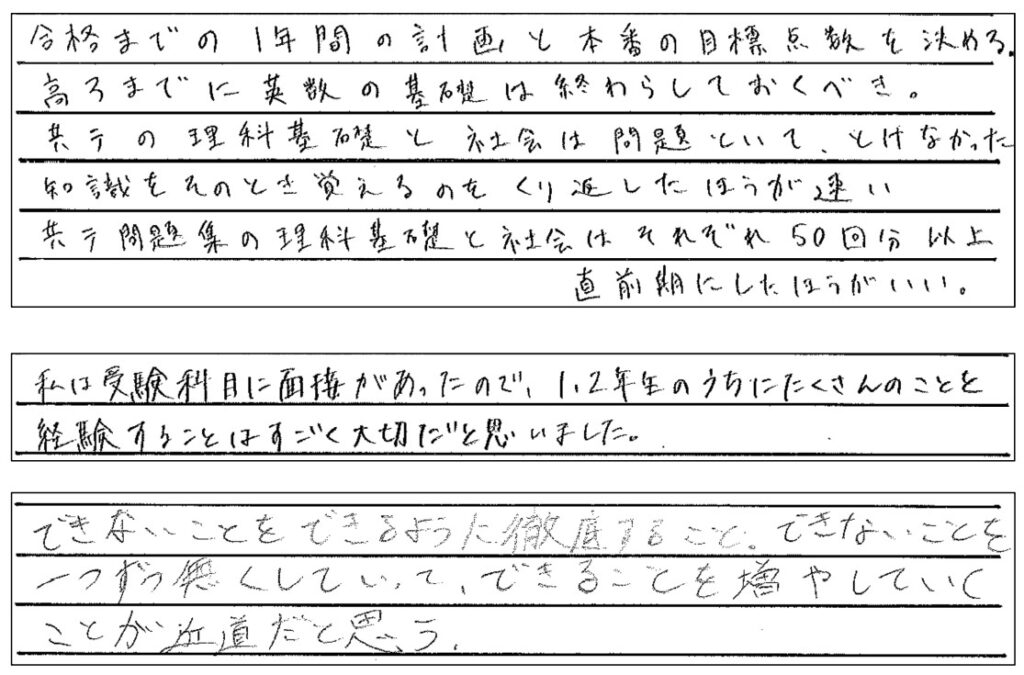 合格までの1年間の計画と本番の目標点数を決める。
高3までに英数の基礎は終わらしておくべき。
共テの理科基礎と社会は問題といて、とけなかった
知識をそのとき覚えるのをくり返したほうが速い
共テ問題集の理科基礎と社会はそれぞれ50回分以上
直前期にしたほうがいい。
私は受験科目に面接があったので、1,2年生のうちにたくさんのことを
経験することはすごく大切だと思いました。
できないことをできるように徹底すること。できないことを
一つずつ無くしていって、できることを増やしていく
ことが近道だと思う。